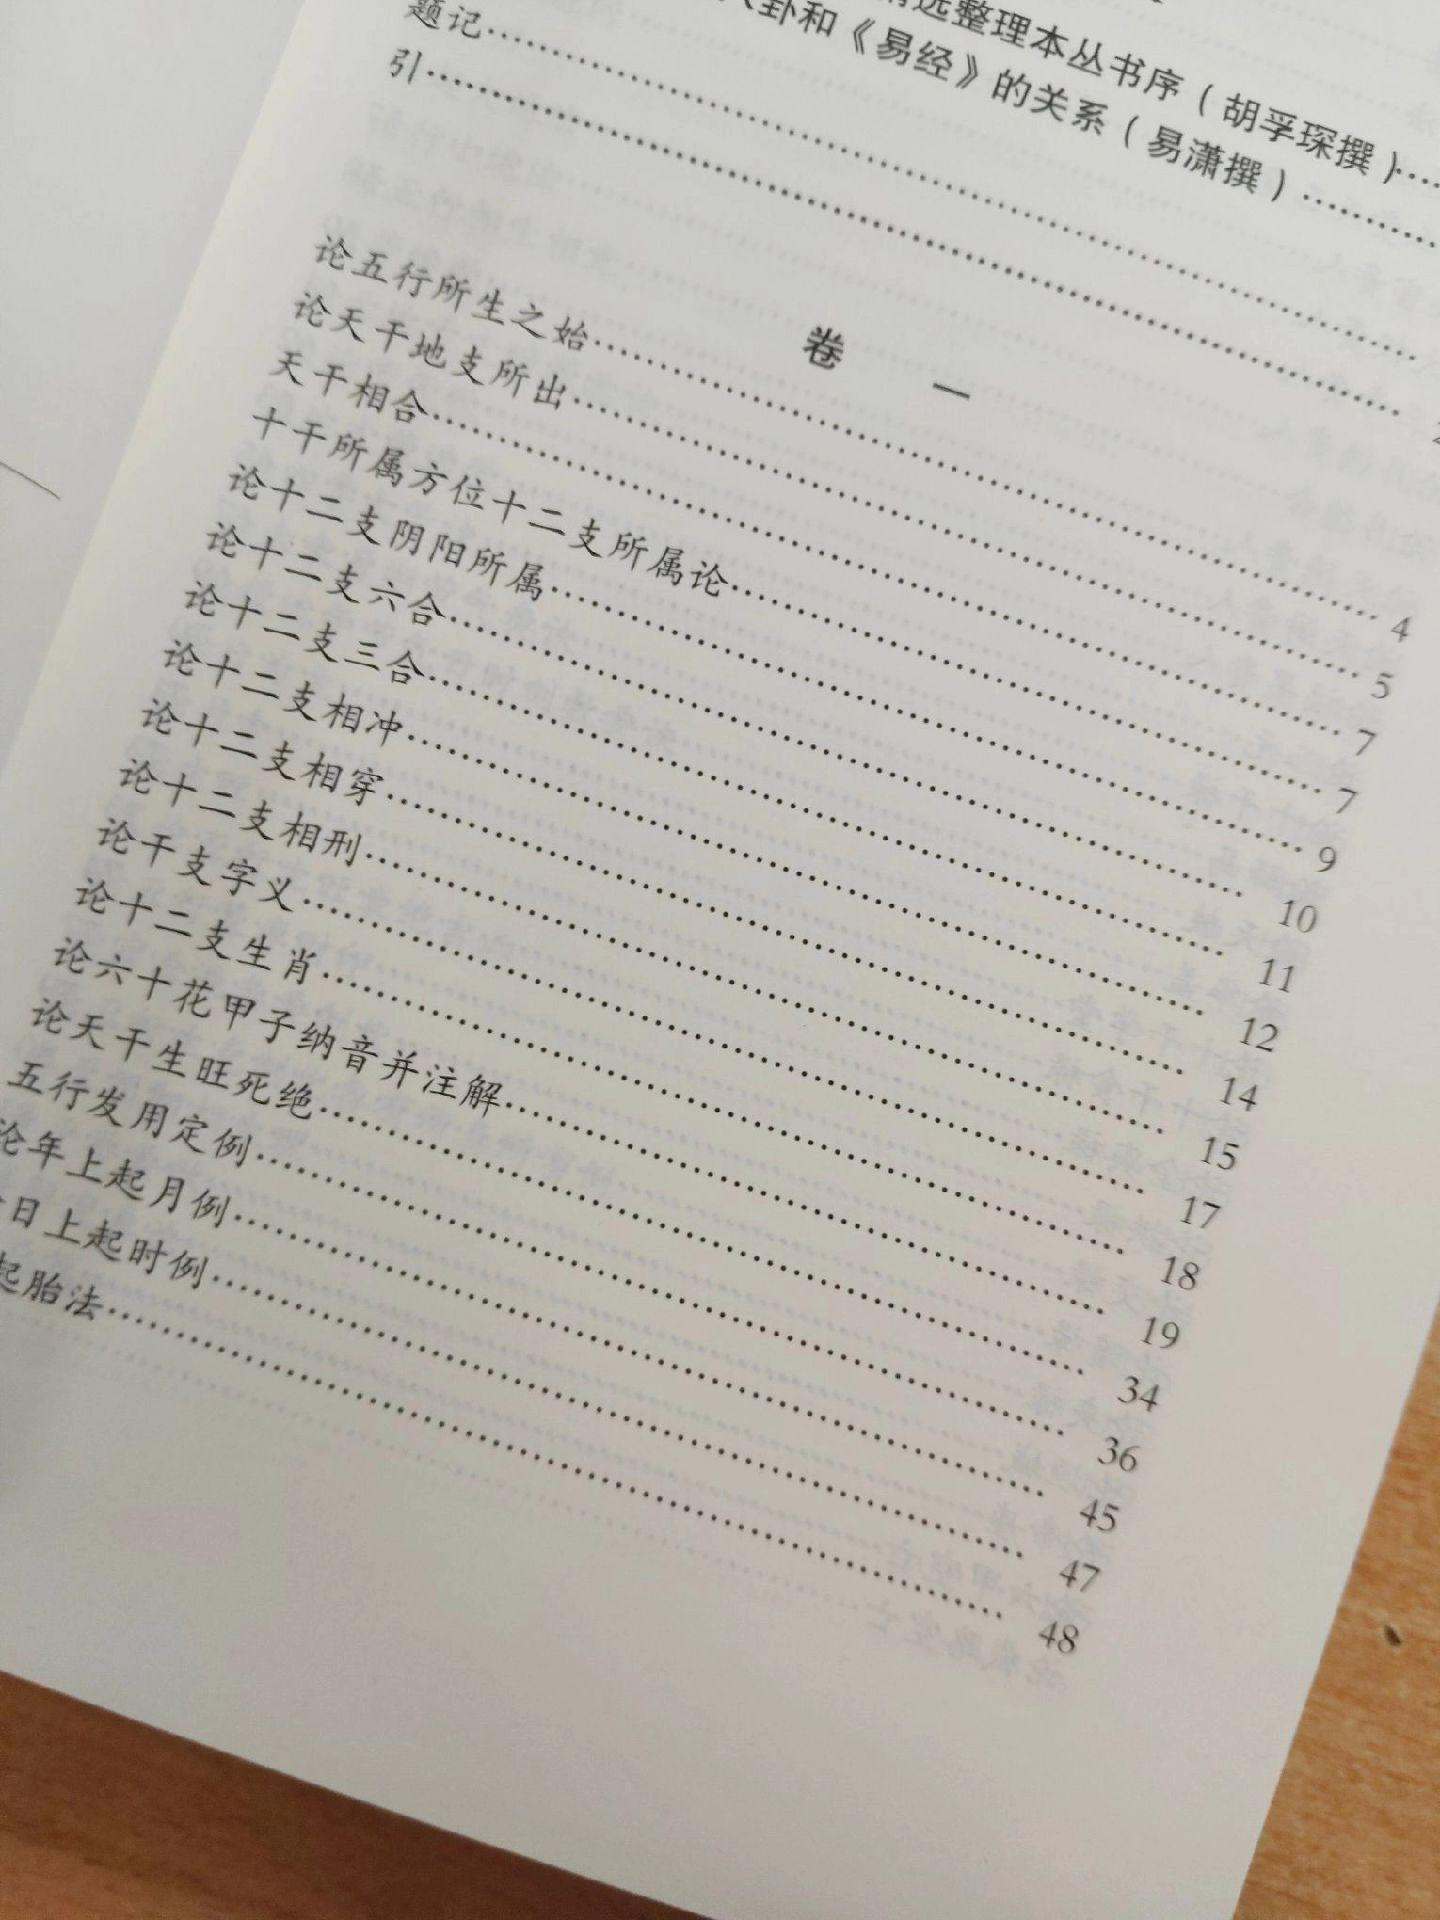 选整理本丛书序（胡孚琛撰）
卦和《易经》的关系（易潇撰）
题记
引
卷 一
论五行所生之始 4
论天干地支所出 5
天干相合 7
十干所属方位十二支所属论 7
论十二支阴阳所属 9
论十二支六合 10
论十二支三合 11
论十二支相冲 12
论十二支相穿 14
论十二支相刑 15
论干支字义 17
论十二支生肖 18
论六十花甲子纳音并注解 19
论天干生旺死绝 34
五行发用定例 36
论年上起月例 45
日上起时例 47
起胎法 48